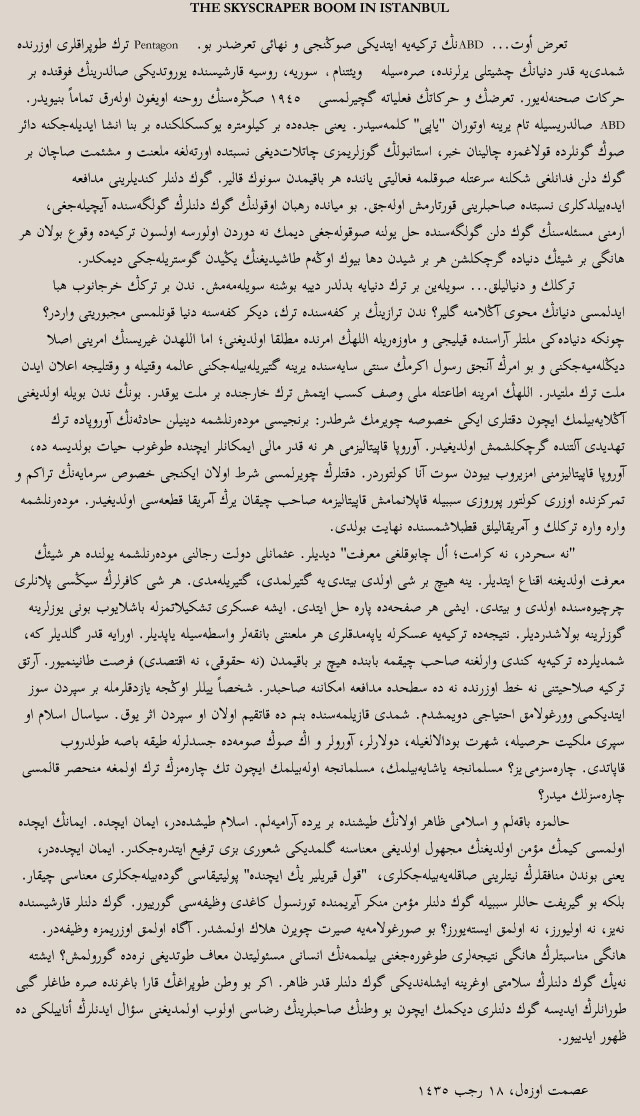 THE SKYSCRAPER BOOM IN ISTANBUL
تعرض أوت... ABDنڭ تركيه‌يه ايتديكى صوڭنجى و نهائى تعرضدر بو. Pentagon ترك طوپراقلرى اوزرنده
شمدى‌يه قدر دنيانڭ چشيتلى يرلرنده، صره‌سيله ويئتنام، سوريه، روسيه قارشيسنده يوروتديكى صالدرينڭ فوقنده بر
حركات صحنه‌له‌يور. تعرضڭ و حركاتڭ فعلياته گچيرلمسى ١٩٤٥ صڭره‌سنڭ روحنه اويغون اوله‌رق تماماً بنيويدر.
ABD صالدريسيله تام يرينه اوتوران "ياپى" كلمه‌سيدر. يعنى جده‌ده بر كيلومتره يوكسكلكنده بر بنا انشا ايديله‌جكنه دائر
صوڭ گونلرده قولاغمزه چالينان خبر، استانبولڭ گوزلريمزى چاتلاتديغى نسبتده اورته‌لغه ملعنت و مشئمت صاچان بر
گوك دلن فدانلغى شكلنه سرعتله صوقلمه فعاليتى ياننده هر باقيمدن سونوك قالير. گوك دلنلر كنديلرينى مدافعه
ايده‌بيلدكلرى نسبتده صاحبلرينى قورتارمش اوله‌جق. بو ميانده رهبان اوقولنڭ گوك دلنلرڭ گولگه‌سنده آچيله‌جغى،
ارمنى مسئله‌سنڭ گوك دلن گولگه‌سنده حل يولنه صوقوله‌جغى ديمك نه دوردن اولورسه اولسون تركيه‌ده وقوع بولان هر
هانگى بر شيئڭ دنياده گرچكلشن هر بر شيدن دها بيوك اوڭه‌م طاشيديغنڭ يڭيدن گوستريله‌جكى ديمكدر.
تركلك و دنياليلق... سويله‌ين بر ترك دنيايه بدلدر دييه بوشنه سويله‌مه‌مش. ندن بر تركڭ خرجانوب هبا
ايدلمسى دنيانڭ محوى آڭلامنه گلير؟ ندن ترازينڭ بر كفه‌سنده ترك، ديكر كفه‌سنه دنيا قونلمسى مجبوريتى واردر؟
چونكه دنياده‌كى ملتلر آراسنده قيليجى و ماوزه‌ريله اللهڭ امرنده مطلقا اولديغنى؛ اما اللهدن غيريسنڭ امرينى اصلا
ديڭله‌ميه‌جكنى و بو امرڭ آنجق رسول اكرمڭ سنتى سايه‌سنده يرينه گتيريله‌بيله‌جكنى عالمه وقتيله و وقتليجه اعلان ايدن
ملت ترك ملتيدر. اللهڭ امرينه اطاعتله ملى وصف كسب ايتمش ترك خارجنده بر ملت يوقدر. بونڭ ندن بويله اولديغنى
آڭلايه‌بيلمك ايچون دقتلرى ايكى خصوصه چويرمك شرطدر: برنجيسى مودەرنلشمه دينيلن حادثه‌نڭ آوروپاده ترك
تهديدى آلتنده گرچكلشمش اولديغيدر. آوروپا قاپيتاليزمى هر نه قدر مالى ايمكانلر ايچنده طوغوب حيات بولديسه ده،
آوروپا قاپيتاليزمنى امزيروب بيودن سوت آنا كولتوردر. دقتلرڭ چويرلمسى شرط اولان ايكنجى خصوص سرمايه‌نڭ تراكم و
تمركزنده اوزرى كولتور پوروزى سببيله قاپلانمامش قاپيتاليزمه صاحب چيقان يرڭ آمريقا قطعه‌سى اولديغيدر. مودەرنلشمه
واره واره تركلك و آمريقاليلق قطبلاشمسنده نهايت بولدى.
"نه سحردر، نه كرامت؛ أل چابوقلغى معرفت" ديديلر. عثمانلى دولت رجالنى مودەرنلشمه يولنده هر شيئڭ
معرفت اولديغنه اقناع ايتديلر. ينه هيچ بر شى اولدى بيتدى‌يه گتيرلمدى، گتيريله‌مدى. هر شى كافرلرڭ سيڭسى پلانلرى
چرچيوه‌سنده اولدى و بيتدى. ايشى هر صفحه‌ده پاره حل ايتدى. ايشه عسكرى تشكيلاتمزله باشلايوب بونى يوزلرينه
گوزلرينه بولاشدرديلر. نتيجه‌ده تركيه‌يه عسكرله ياپه‌مدقلرى هر ملعنتى بانقه‌لر واسطه‌سيله ياپديلر. اورايه قدر گلديلر كه،
شمديلرده تركيه‌يه كندى وارلغنه صاحب چيقمه بابنده هيچ بر باقيمدن (نه حقوقى، نه اقتصدى) فرصت طانينميور. آرتق
تركيه صلاحيتنى نه خط اوزرنده نه ده سطحده مدافعه امكاننه صاحبدر. شخصاً ييللر اوڭجه يازدقلرمله بر سپردن سوز
ايتديكمى وورغولامق احتياجى دويمشدم. شمدى قازيلمه‌سنده بنم ده قاتقيم اولان او سپردن اثر يوق. سياسال اسلام او
سپرى ملكيت حرصيله، شهرت بودالالغيله، دولارلر، آورولر و اڭ صوڭ صومه‌ده جسدلرله طيقه باصه طولدروب
قاپاتدى. چاره‌سزمى‌يز؟ مسلمانجه ياشايه‌بيلمك، مسلمانجه اوله‌بيلمك ايچون تك چاره‌مزڭ ترك اولمغه منحصر قالمسى
چاره‌سزلك ميدر؟
حالمزه باقه‌لم و اسلامى ظاهر اولانڭ طيشنده بر يرده آراميه‌لم. اسلام طيشده‌در، ايمان ايچده. ايمانڭ ايچده
اولمسى كيمڭ مؤمن اولديغنڭ مجهول اولديغى معناسنه گلمديكى شعورى بزى ترفيع ايتدره‌جكدر. ايمان ايچده‌در،
يعنى بوندن منافقلرڭ نيتلرينى صاقلايه‌بيله‌جكلرى، "قول قيريلير يڭ ايچنده" پوليتيقاسى گوده‌بيله‌جكلرى معناسى چيقار.
بلكه بو گيريفت حاللر سببيله گوك دلنلر مؤمن منكر آيريمنده تورنسول كاغدى وظيفه‌سى گورييور. گوك دلنلر قارشيسنده
نه‌يز، نه اوليورز، نه اولمق ايسته‌يورز؟ بو صورغولامه‌يه صيرت چويرن هلاك اولمشدر. آگاه اولمق اوزريمزه وظيفه‌در.
هانگى مناسبتلرڭ هانگى نتيجه‌لرى طوغوره‌جغنى بيلممه‌نڭ انسانى مسئوليتدن معاف طوتديغى نره‌ده گورولمش؟ ايشته
نه‌يڭ گوك دلنلرڭ سلامتى اوغرينه ايشله‌نديكى گوك دلنلر قدر ظاهر. اكر بو وطن طوپراغڭ قارا باغرنده صره طاغلر گبى
طورانلرڭ ايديسه گوك دلنلرى ديكمك ايچون بو وطنڭ صاحبلرينڭ رضاسى اولوب اولمديغنى سؤال ايدنلرڭ أناييلكى ده
ظهور ايدييور.
عصمت اوزه‌ل، ١٨ رجب ١٤٣٥